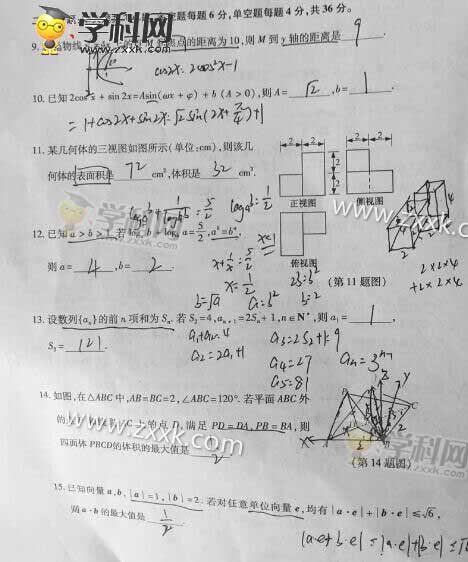 每题6分,单空题每题4分,共36分。
的距离为10,则M到y轴的距离是 9 .
cos2x=2cos²x-1
10. 已知2cos²x+sin 2x=Asin(ωx+φ)+b(A>0),则A= √2 ,b= 1 .
=1+cos2x+sin2x=√2sin(2x+π/4)+1
11. 某几何体的三视图如图所示(单位:cm),则该几
何体的表面积是 72 cm²,体积是 32 cm³.
正视图 侧视图
俯视图
(第11题图)
2×2×4
+2×2×4
12. 已知a>b>1.若logₐb+log_b a=5/2,aᵇ=bᵃ,
则a= 4 ,b= 2 .
logₐb+1/logₐb=5/2 logₐb=1/2
x+1/x=5/2
x=1/2
b=√a a=b²
2b=b²
b=2
13. 设数列{aₙ}的前n项和为Sₙ.若S₂=4,aₙ₊₁=2Sₙ+1,n∈N*,则a₁= 1 ,
S₅= 121 .
a₁+a₂=4
a₂=2a₁+1
a₃=2S₂+1=9
a₄=27
a₅=81
aₙ=3ⁿ⁻¹
14. 如图,在△ABC中,AB=BC=2,∠ABC=120°.若平面ABC外
的点D,满足PD=DA,PB=BA,则
四面体PBCD的体积的最大值是
(第14题图)
15. 已知向量a,b,|a|=1,|b|=2.若对任意单位向量e,均有|a·e|+|b·e|≤√6,
则a·b的最大值是 1/2 .
|a·e+b·e|≤|a·e|+|b·e|≤
学科网
www.zxxk.com
zxxk.com